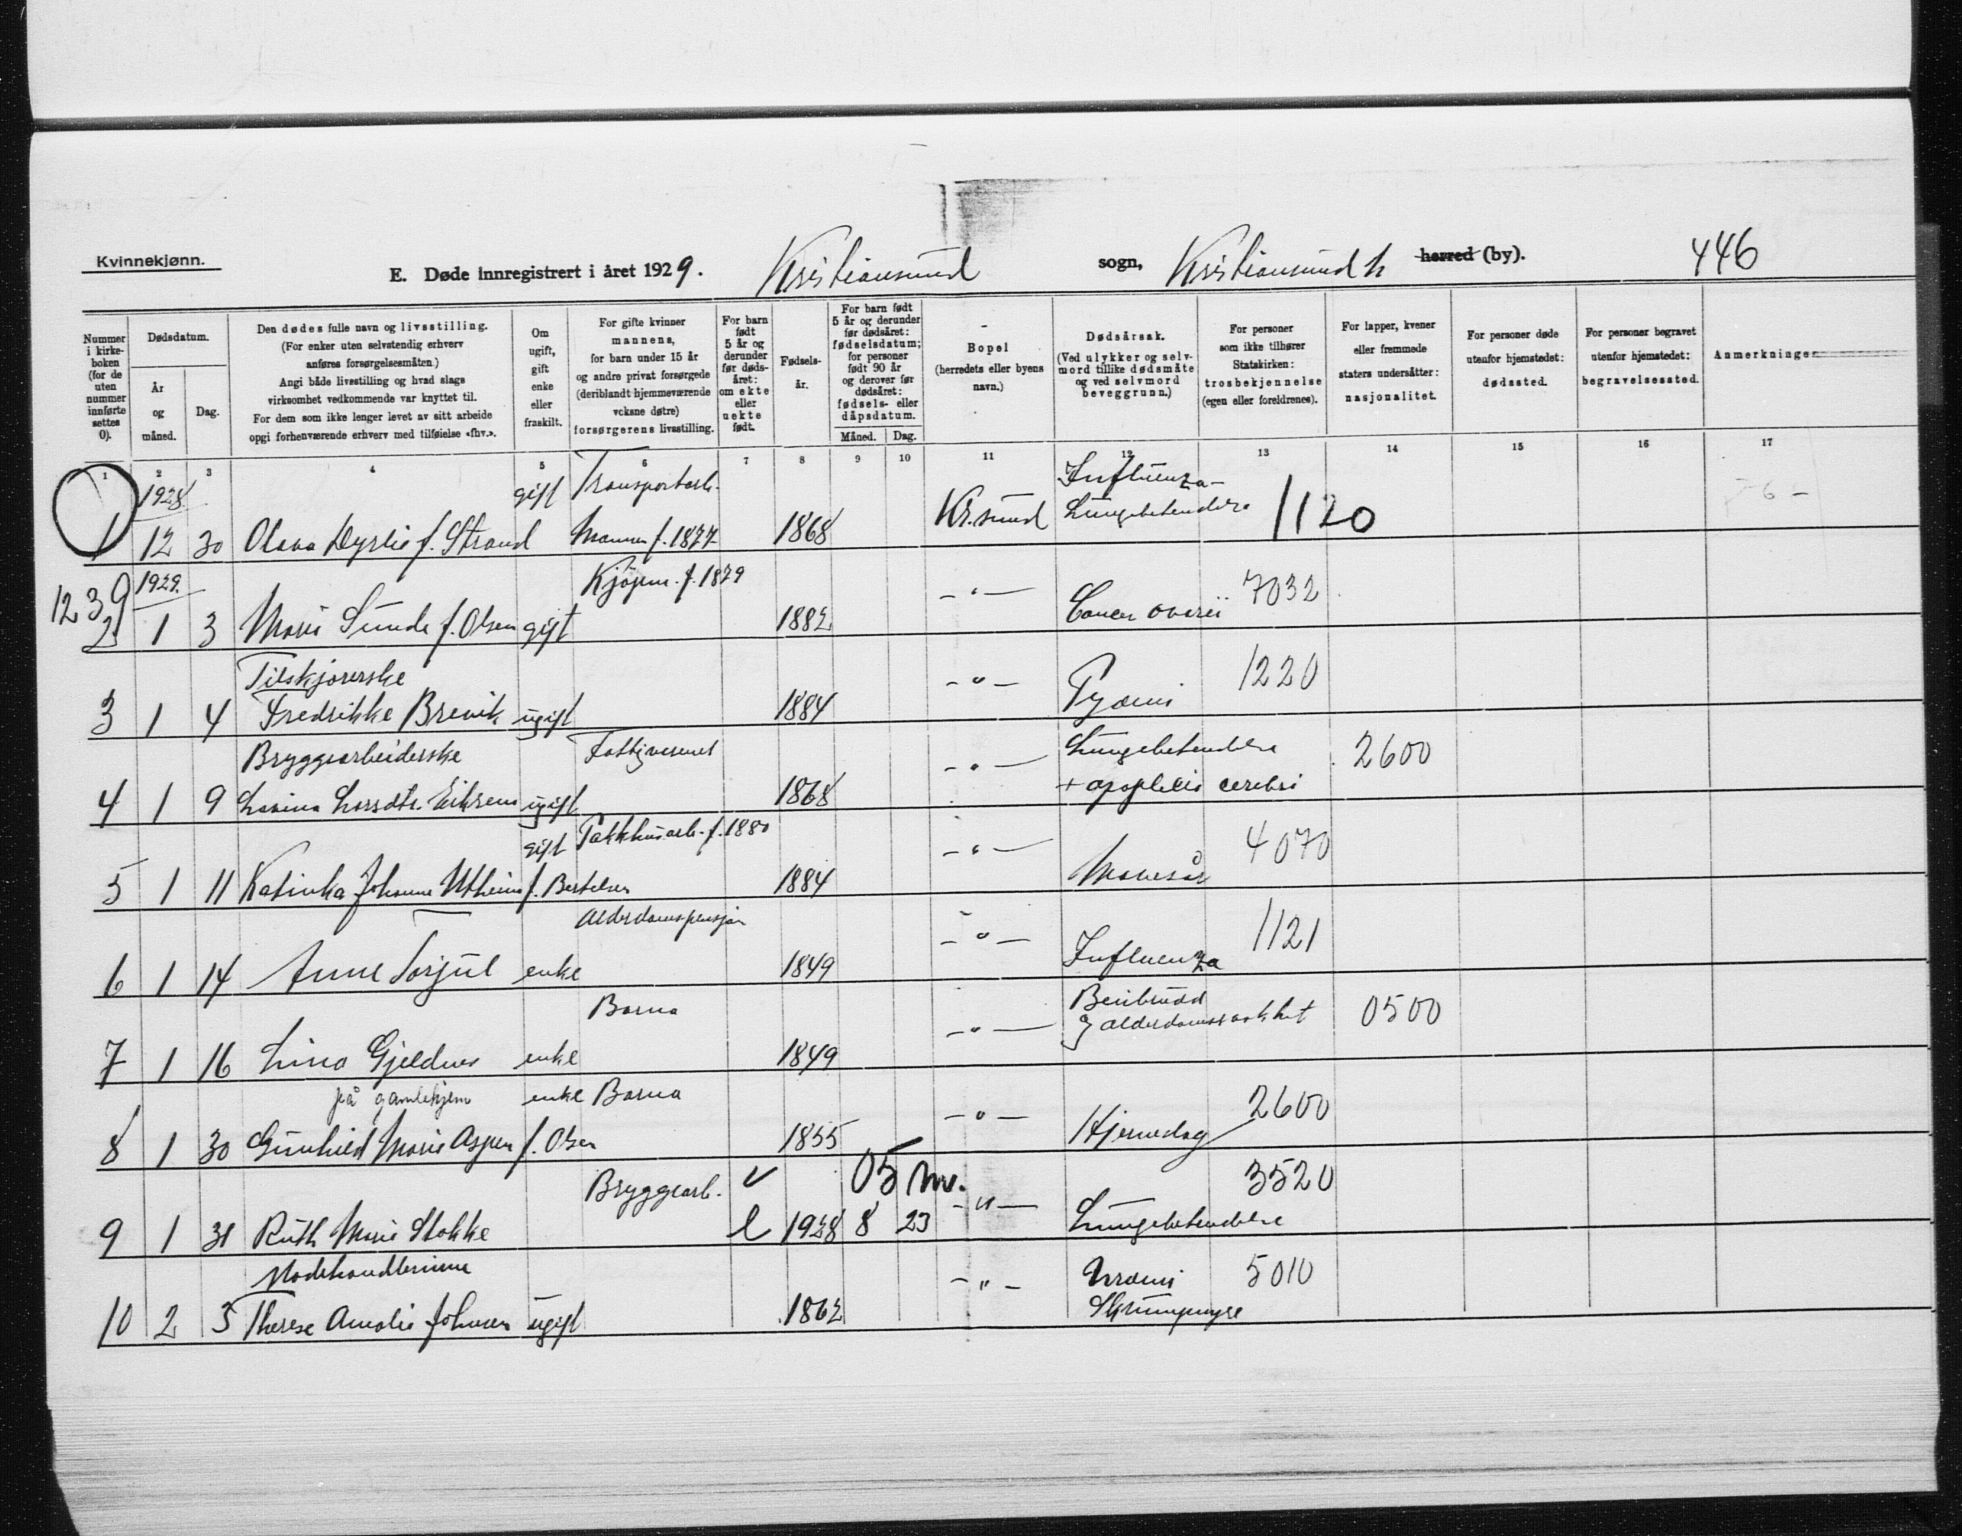 Kvinnekjønn.
E. Døde innregistrert i året 1929. Kristiansund sogn, Kristiansund N herred (by). 446
Nummer i kirkeboken (for de uten nummer innførte settes 0).
Dødsdatum.
År og måned.
Dag.
Den dødes fulle navn og livsstilling.
(For enker uten selvstendig erhverv anføres forsørgelsesmåten.)
Angi både livsstilling og hvad slags virksomhet vedkommende var knyttet til.
For dem som ikke lenger levet av sitt arbeide opgi forhenværende erhverv med tilføielse «fhv.».
Om ugift, gift enke eller fraskilt.
For gifte kvinner mannens, for barn under 15 år og andre privat forsørgede (deriblandt hjemmeværende voksne døtre) forsørgerens livsstilling.
For barn født 5 år og derunder før dødsåret: om ekte eller uekte født.
Fødselsår.
For barn født 5 år og derunder før dødsåret: fødselsdatum; for personer født 90 år og derover før dødsåret: fødsels- eller dåpsdatum.
Måned. Dag.
Bopel (herredets eller byens navn.)
Dødsårsak. (Ved ulykker og selvmord tillike dødsmåte og ved selvmord beveggrunn.)
For personer som ikke tilhører Statskirken: trosbekjennelse (egen eller foreldrenes).
For lapper, kvener eller fremmede staters undersåtter: nasjonalitet.
For personer døde utenfor hjemstedet: dødssted.
For personer begravet utenfor hjemstedet: begravelsessted.
Anmerkninger
1 2 3 4 5 6 7 8 9 10 11 12 13 14 15 16 17
1928 gift Transportarb. Influenza-
1 12 30 Olava Dyrlie f. Strand Mannen f. 1877 1868 Kr.sund Lungebetendelse 1120
1239 1929. Kjøpm. f. 1879
2 1 3 Marie Sunde f. Olsen gift 1882 -"- Cancer ovarii 7032
Tilskjærerske
3 1 4 Fredrikke Brevik ugift 1884 -"- Pyæmi 1220
Bryggearbeiderske Fattigvesenet Lungebetendelse
4 1 9 Lovina Larsdtr. Eikrem ugift 1868 -"- + apoplexia cerebri 2600
gift Pakkhusarb. f. 1880
5 1 11 Katinka Johanne Utheim f. Bertelsen 1884 -"- Mavesår 4070
Alderdomspensjon
6 1 14 Anne Sorgul enke 1849 -"- Influenza 1121
Barna Benbrudd
7 1 16 Lina Gjeldnes enke 1849 -"- og alderdomssvakhet 0500
på gamlehjem enke Barna
8 1 30 Gunhild Marie Aspen f. Olsen 1855 -"- Hjerneslag 2600
Bryggearb. v 05 mv. 3520
9 1 31 Ruth Marie Stokke e 1928 8 23 -"- Lungebetendelse
Motehandlerinne Uræmi 5010
10 2 3 Therese Amalie Johnsen ugift 1862 -"- Skrumpnyre